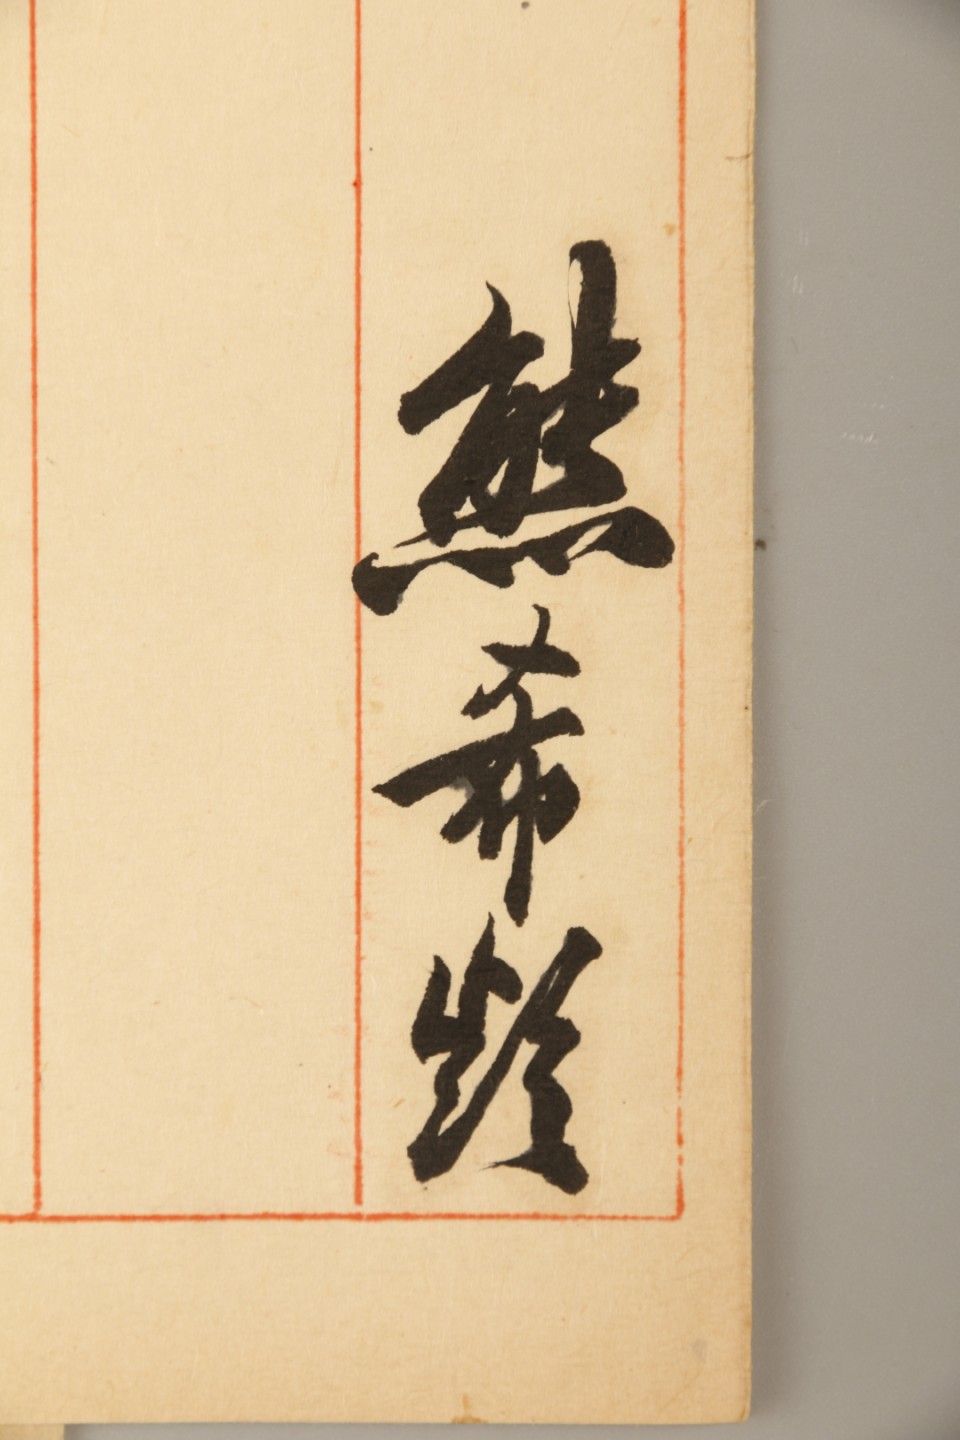 熊希齡